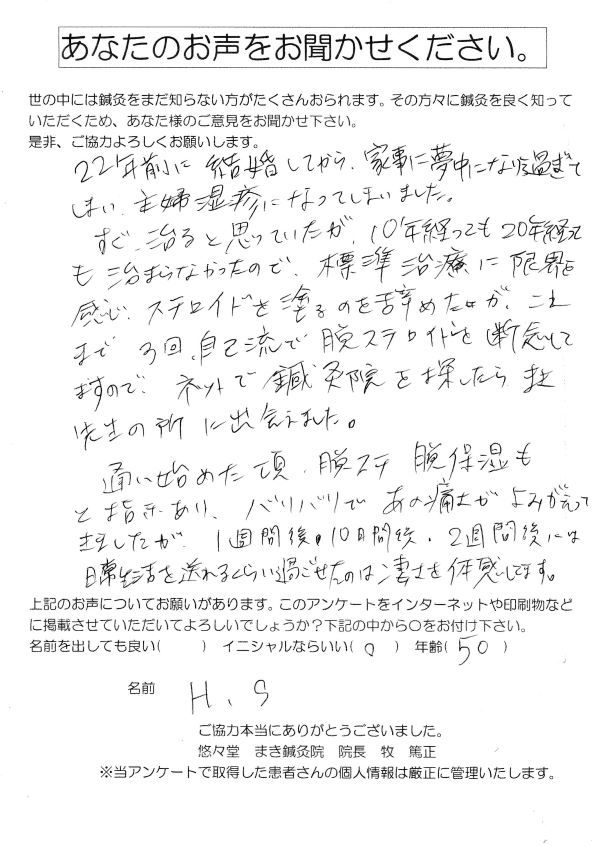 あなたのお声をお聞かせください。
世の中には鍼灸をまだ知らない方がたくさんおられます。その方々に鍼灸を良く知って
いただくため、あなた様のご意見をお聞かせ下さい。
是非、ご協力よろしくお願いします。
22年前に結婚してから、家事に夢中になり過ぎて
しまい、主婦湿疹になってしまいました。
すぐ治ると思っていたが、10年経っても20年経って
も治まらなかったので、標準治療に限界を
感じ、ステロイドを塗るのを辞めたが、これ
まで3回、自己流で脱ステロイドを断念して
ますので、ネットで鍼灸院を探したらまき
先生の所に出会えました。
通い始めた頃、脱ステ脱保湿も
と指あり、バリバリであの痛さがよみがえって
きましたが、1週間後、10日間後、2週間後には
日常生活を送れるくらい過ごせたのは凄さを体感してます。
上記のお声についてお願いがあります。このアンケートをインターネットや印刷物など
に掲載させていただいてよろしいでしょうか？下記の中から○をお付け下さい。
名前を出しても良い(　　) イニシャルならいい( o ) 年齢( 50 )
名前 H.S
ご協力本当にありがとうございました。
悠々堂 まき鍼灸院 院長 牧 篤正
※当アンケートで取得した患者さんの個人情報は厳正に管理いたします。